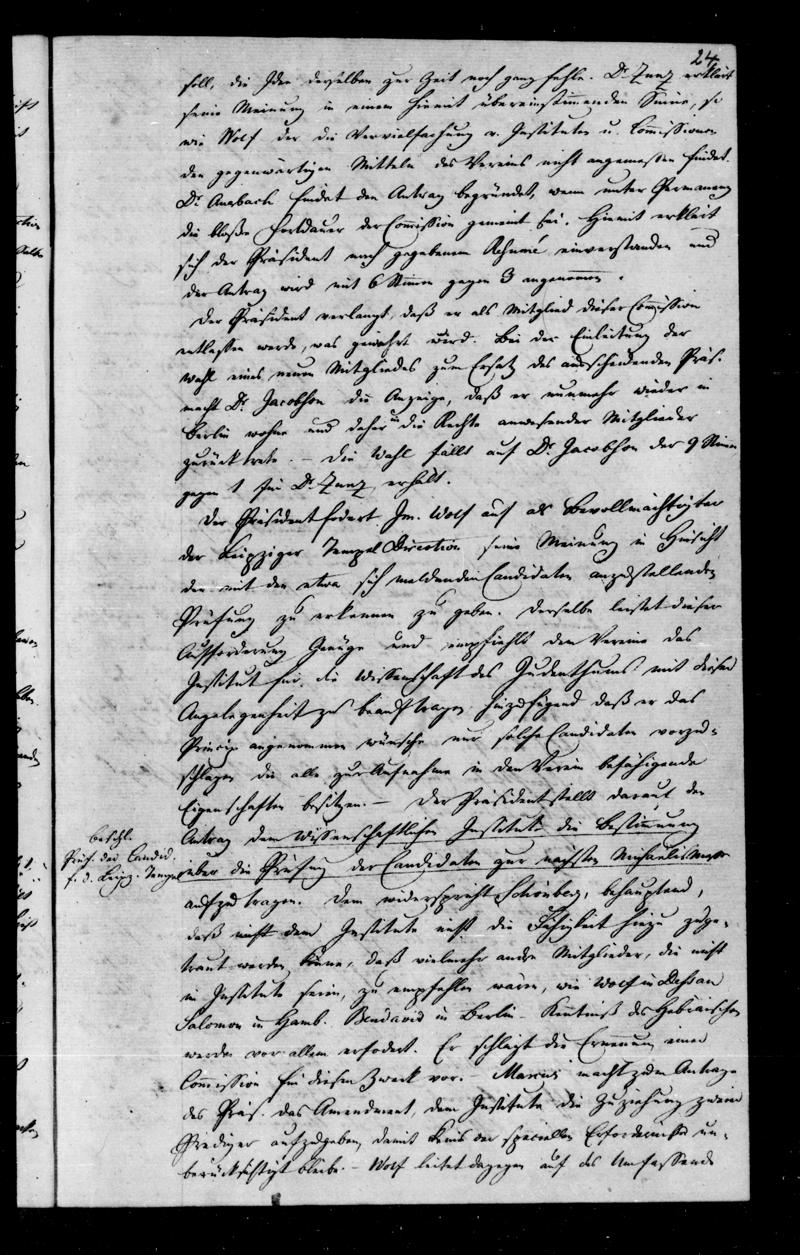 24.
soll, die Idee derselben zur Zeit noch ganz fehle. Dr Zunz erklärt
seine Meinung in einem hiermit übereinstimmenden Sinne, so
wie Wolf der die Vervielfachung v. Instituten u. Commissionen
den gegenwärtigen Mitteln des Vereins nicht angemessen findet.
Dr Auerbach findet den Antrag begründet, wenn unter Permanenz
die bloße Fortdauer der Commission gemeint sei. Hiermit erklärt
sich der Präsident nach gegebenem Resumé einverstanden und
der Antrag wird mit 6 Stimmen gegen 3 angenommen.
Der Präsident verlangt, daß er als Mitglied dieser Commission
entlassen werde, was gewährt wird. Bei der Einleitung der
Wahl eines neuen Mitgliedes zum Ersatz des ausscheidenden Präs.
macht Dr. Jacobson die Anzeige, daß er nunmehr wieder in
Berlin wohne und daher in die Rechte anwesender Mitglieder
zurücktrete. – Die Wahl fällt auf Dr. Jacobson der 9 Stimmen
gegen 1 für Dr. Zunz, erhält.
Der Präsident fodert Hn. Wolf auf als Bevollmächtigter
der Leipziger Tempel Direction seine Meinung in Hinsicht
der mit den etwa sich meldenden Candidaten anzustellenden
Prüfung zu erkennen zu geben. Derselbe leistet dieser
Aufforderung Genüge und empfiehlt dem Vereine das
Institut für die Wissenschaft des Judenthums mit dieser
Angelegenheit zu beauftragen hinzufügend daß er das
Princip angenommen wünsche nur solche Candidaten vorzu-
schlagen die alle zur Aufnahme in den Verein befähigende
Eigenschaften besitzen. – Der Präsident stellt darauf den
Antrag dem wissenschaftlichen Institute die Bestimmung
beschl.
Prüf. der Candid.
f. d. Leipz. Tempel
über die Prüfung der Candidaten zur nächsten Michaelis Messe
aufzutragen. Dem widerspricht Schönberg, behauptend,
daß nicht dem Institute die Fähigkeit hiezu zuge-
traut werden könne, daß vielmehr andre Mitglieder, die nicht
im Institute seien, zu empfehlen wären, wie Wolf in Dessau
Salomon in Hamb. Bendavid in Berlin – Kenntniß des Hebräischen
werde vor allem erfodert. Er schlägt die Ernennung einer
Commission für diesen Zweck vor. Marcus macht zum Antrage
des Präs. das Amendment, dem Institute die Zuziehung zweier
Prediger aufzugeben, damit keins der speciellen Erfordernisse un-
berücksichtigt bleibe. – Wolf leitet dagegen auf das Umfassende